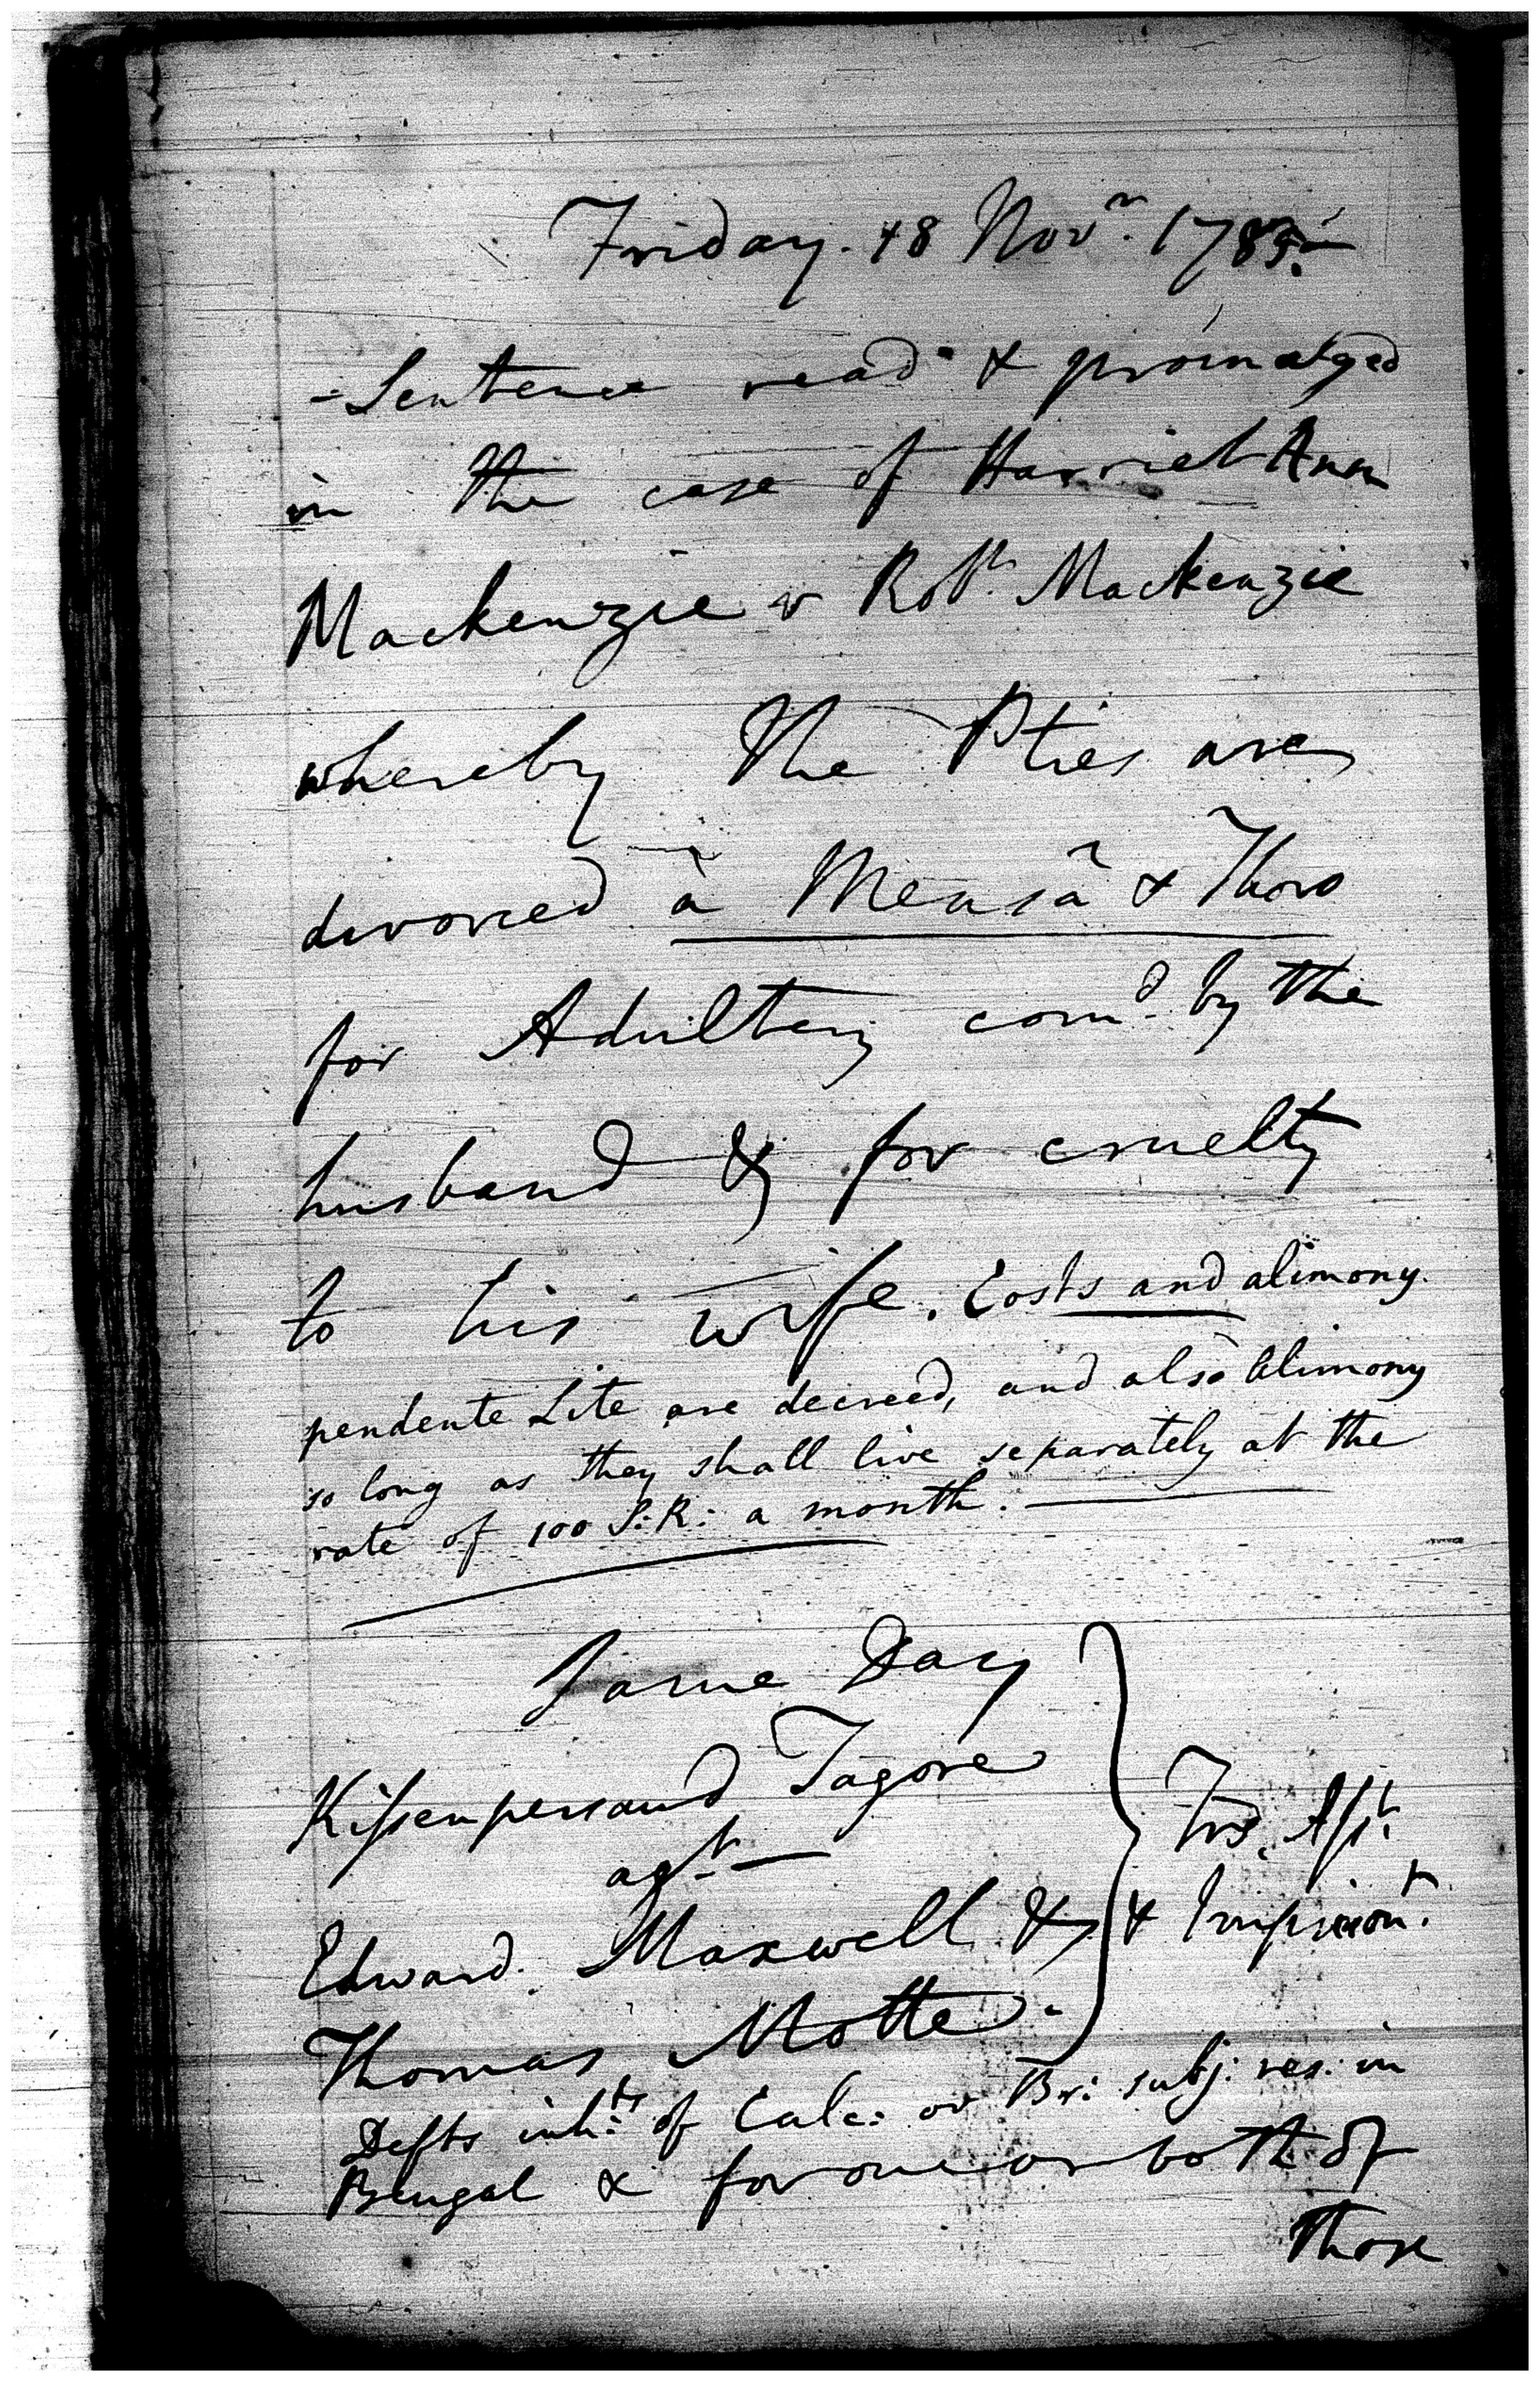 Friday. 18 Novr. 1785.
- Sentence read & promulged
in the case of Harriet Ann
Mackenzie v Robt. Mackenzie
whereby the Pties are
divorced à Mensâ & Thoro
for Adultery comd. by the
husband & for cruelty
to his wife. Costs and alimony
pendente Lite are decreed, and also Alimony
so long as they shall live separately at the
rate of 100 S: R: a month.
Day
Kissenpersaud Tagore
agt.
Edward Maxwell &
Thomas Motte.
Trs. Aslt.
& Imprisont.
Defts inhts. of Calc: or Br: subj: res: in
Bengal & for one or both of
those